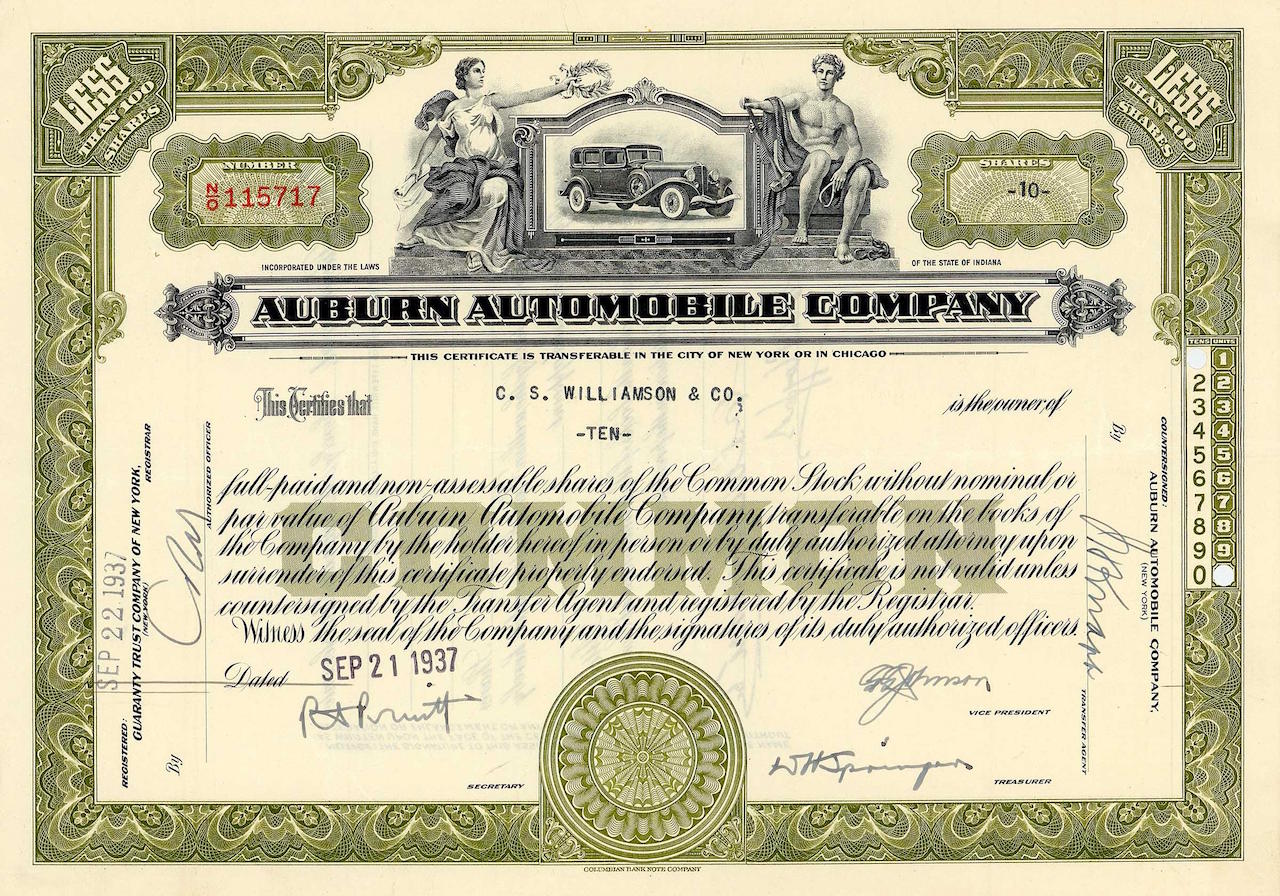 LESS
THAN 100
SHARES
LESS
THAN 100
SHARES
NUMBER
No 115717
SHARES
-10-
INCORPORATED UNDER THE LAWS
OF THE STATE OF INDIANA
AUBURN AUTOMOBILE COMPANY
THIS CERTIFICATE IS TRANSFERABLE IN THE CITY OF NEW YORK OR IN CHICAGO
This Certifies that
C. S. WILLIAMSON & CO.
is the owner of
-TEN-
full-paid and non-assessable shares of the Common Stock, without nominal or
par value of Auburn Automobile Company, transferable on the books of
the Company by the holder hereof, in person or by duly authorized attorney upon
surrender of this certificate properly endorsed. This certificate is not valid unless
countersigned by the Transfer Agent and registered by the Registrar.
Witness the seal of the Company and the signatures of its duly authorized officers.
COMMON
Dated SEP 21 1937
SECRETARY
VICE PRESIDENT
W H Springer
TREASURER
REGISTERED:
GUARANTY TRUST COMPANY OF NEW YORK,
(NEW YORK)
REGISTRAR
By
AUTHORIZED OFFICER
SEP 22 1937
COUNTERSIGNED:
AUBURN AUTOMOBILE COMPANY,
(NEW YORK)
By
TRANSFER AGENT
TENS UNITS
1
2 2
3 3
4 4
5 5
6 6
7 7
8 8
9 9
0
COLUMBIAN BANK NOTE COMPANY